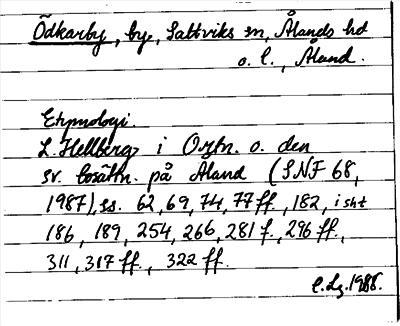 Ödkarby, by, Saltviks sn, Ålands hd
o. l., Åland.
Etymologi
L. Hellberg i Ortn. o. den
sv. bosättn. på Åland (SNF 68,
1987), ss. 62, 69, 74, 77 ff., 182, isht
186, 189, 254, 266, 281 f., 296 ff.,
311, 317 ff., 322 ff.
1988.